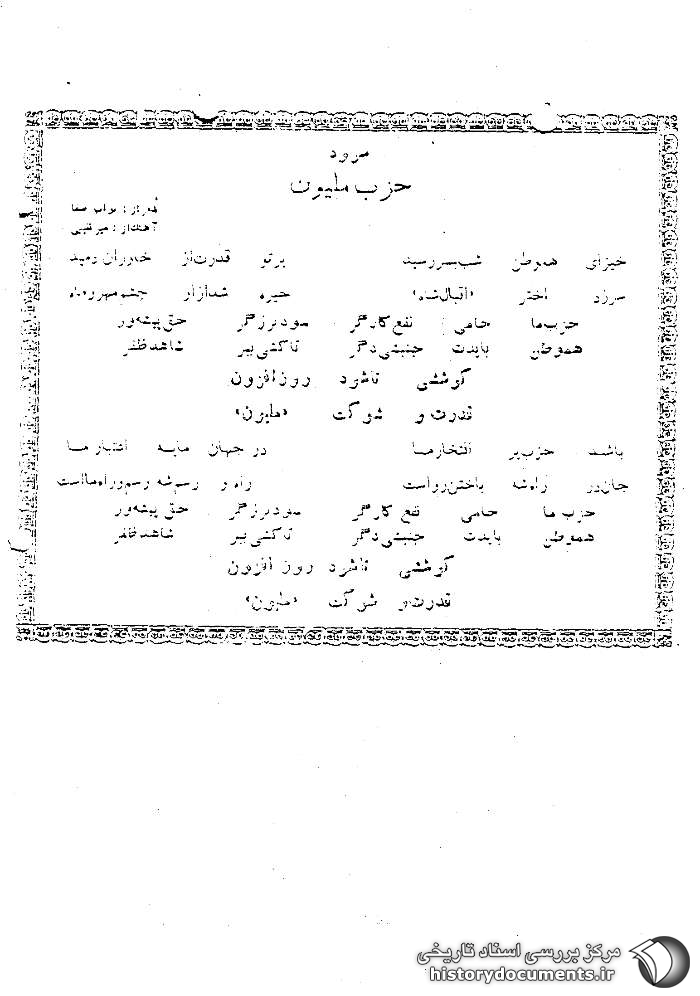 سرود
حزب ملیون
شعر از : نواب صفا
آهنگ از :
خیز ای هموطن شب بسر رسید پرتو قدرت از خاوران دمید
سر زد اختر «اقبال شاه» خیره شد از او چشم مهر و ماه
حزب ما حامی نفع کارگر سود برزگر حق پیشه‌ور
هموطن بایدت جنبشی دگر تا کشی ببر شاهد ظفر
کوششی تا شود روز افزون
قدرت و شوکت «ملیون»
باشد حزب پر افتخار ما در جهان مایه اعتبار ما
جان در راه شه باختن رواست راه و رسم شه رسم و راه ماست
حزب ما حامی نفع کارگر سود برزگر حق پیشه‌ور
هموطن بایدت جنبشی دگر تا کشی ببر شاهد ظفر
کوششی تا شود روز افزون
قدرت و شوکت «ملیون»
مرکز بررسی اسناد تاریخی
historydocuments.ir